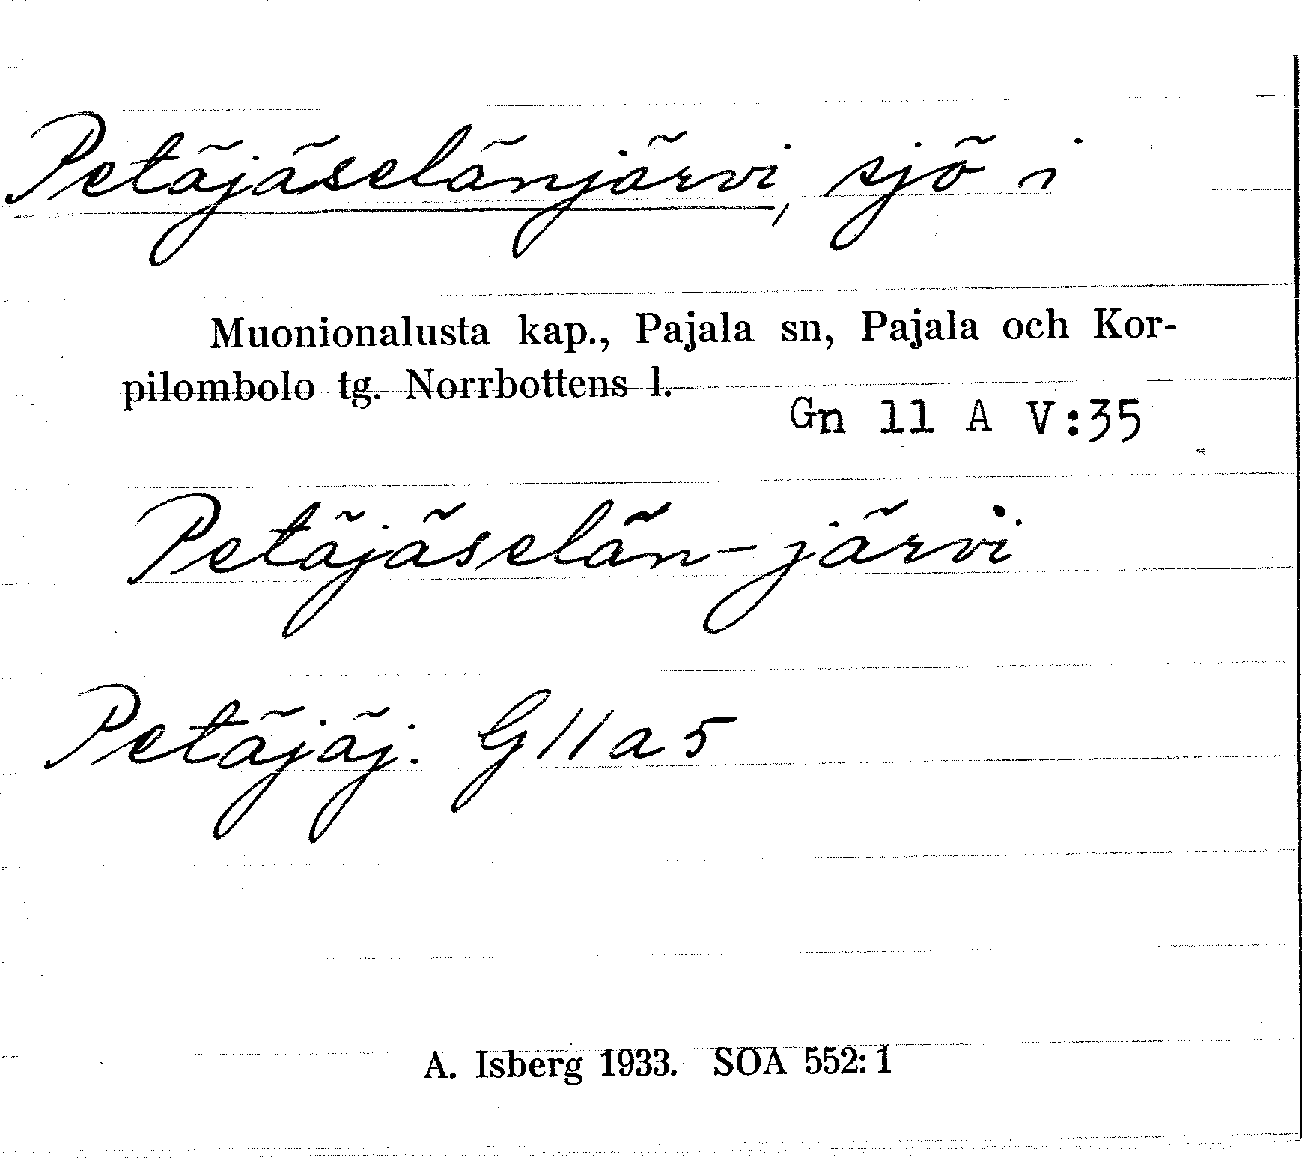 Petäjäselänjärvi, sjö i
Muonionalusta kap., Pajala sn, Pajala och Kor-
pilombolo tg. Norrbottens l.
Gn 11 A V:35
Petäjäselän-järvi
Petäjäj. G11a5
A. Isberg 1933. SOA 552:1